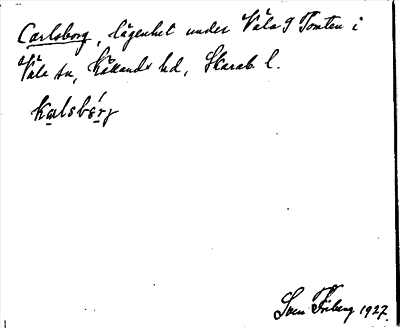 Carlsborg, lägenhet under Väla 9 Tomten i
Väla sn, Kållands hd, Skarab. l.
kalsbérj
Sven Friberg 1927.